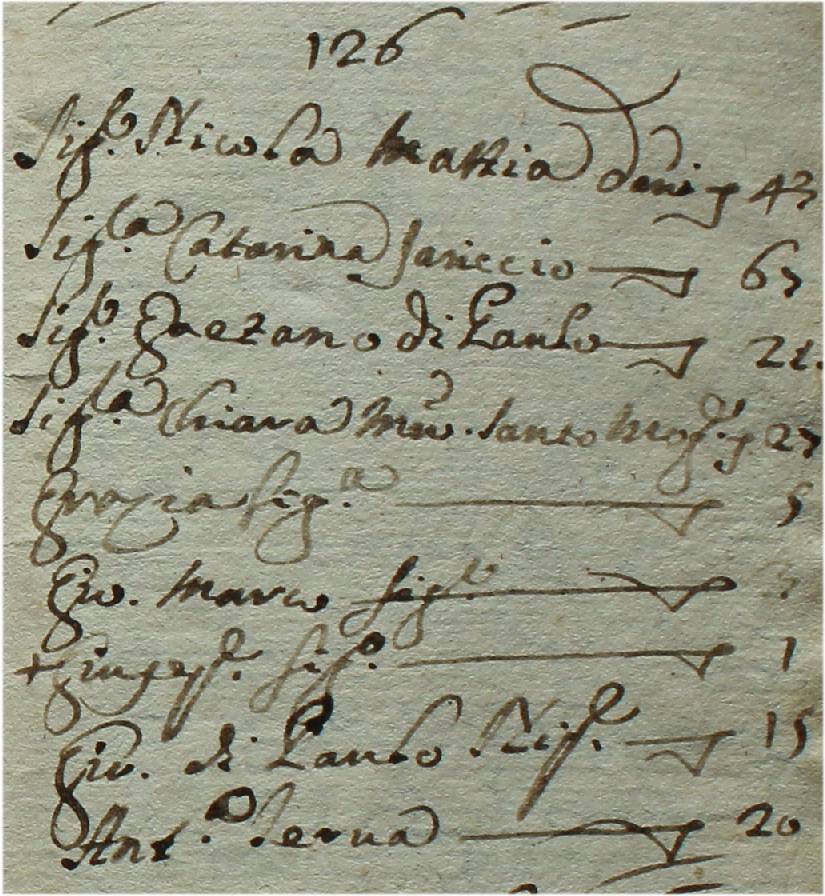 126
Sig.r Nicola Mattia d'anni 43
Sig.ra Catarina Jariccio 67
Sig.r Gaetano di Paulo 21.
Sig.ra Chiara Santo Mog. 27
Grazia fig.a 5
Gio. Marco fig.o 3
+ Giusep.e fig.o 1
Gio. di Paulo Nip.e 15
Ant.a Serua 20